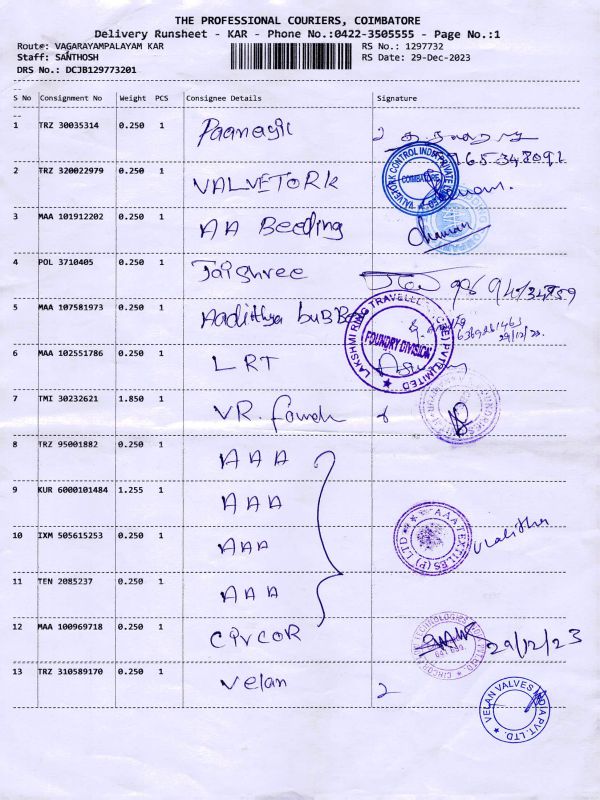 THE PROFESSIONAL COURIERS, COIMBATORE
Delivery Runsheet - KAR - Phone No.:0422-3505555 - Page No.:1
Route: VAGARAYAMPALAYAM KAR RS No.: 1297732
Staff: SANTHOSH RS Date: 29-Dec-2023
DRS No.: DCJB129773201
S No Consignment No Weight PCS Consignee Details Signature
1 TRZ 30035314 0.250 1
2 TRZ 320022979 0.250 1 VALVETORK
COIMBATORE
3 MAA 101912202 0.250 1 AA Beeding
4 POL 3710405 0.250 1 Jaishree
5 MAA 107581973 0.250 1 Aadithya
29/12/23
LAKSHMI RING TRAVELLERS (CBE) PVT LIMITED
FOUNDRY DIVISION
6 MAA 102551786 0.250 1 LRT
7 TMI 30232621 1.850 1 VR.
8 TRZ 95001882 0.250 1 AAA
9 KUR 6000101484 1.255 1 AAA
10 IXM 505615253 0.250 1 AAA
AAA TEXTILES (P) LTD Lalitha
11 TEN 2085237 0.250 1 AAA
12 MAA 100969718 0.250 1 29/12/23
13 TRZ 310589170 0.250 1 Velan
VELAN VALVES INDIA PVT. LTD.